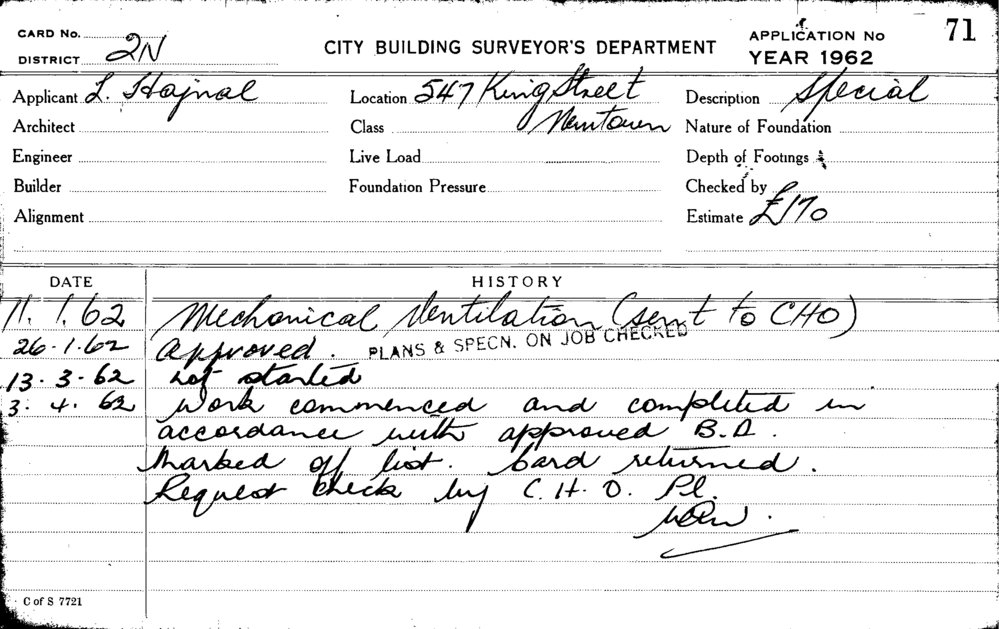 CARD No.
DISTRICT 2N
CITY BUILDING SURVEYOR'S DEPARTMENT
APPLICATION No 71
YEAR 1962
Applicant L. Hajnal
Location 547 King Street
Newtown
Description Special
Architect
Class
Nature of Foundation
Engineer
Live Load
Depth of Footings
Builder
Foundation Pressure
Checked by
Alignment
Estimate £170
DATE HISTORY
11.1.62 Mechanical Ventilation (sent to CHO)
26.1.62 Approved. PLANS & SPECN. ON JOB CHECKED
13.3.62 not started
3.4.62 Work commenced and completed in
accordance with approved B.A.
Marked off list. Card returned.
Request check by C.H.O. Pl.
C of S 7721